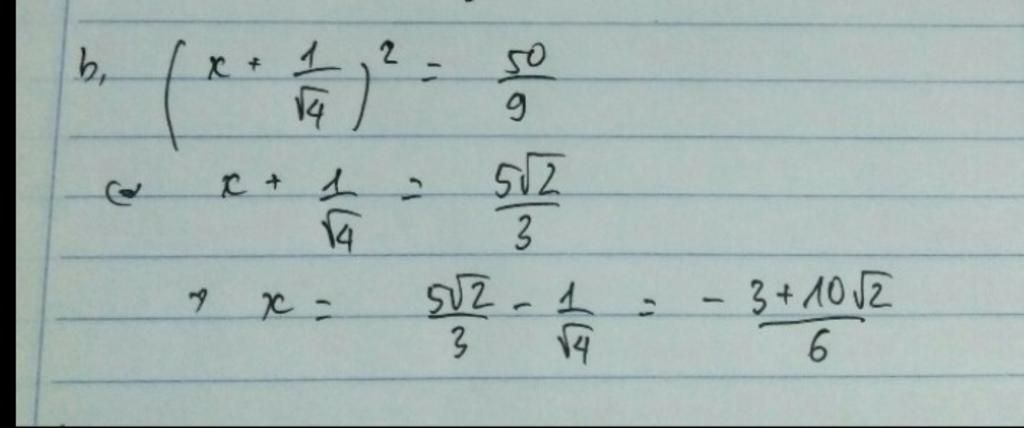 b, (x + 1/√4)² = 50/9
⇔ x + 1/√4 = 5√2/3
→ x = 5√2/3 - 1/√4 = - 3+10√2/6